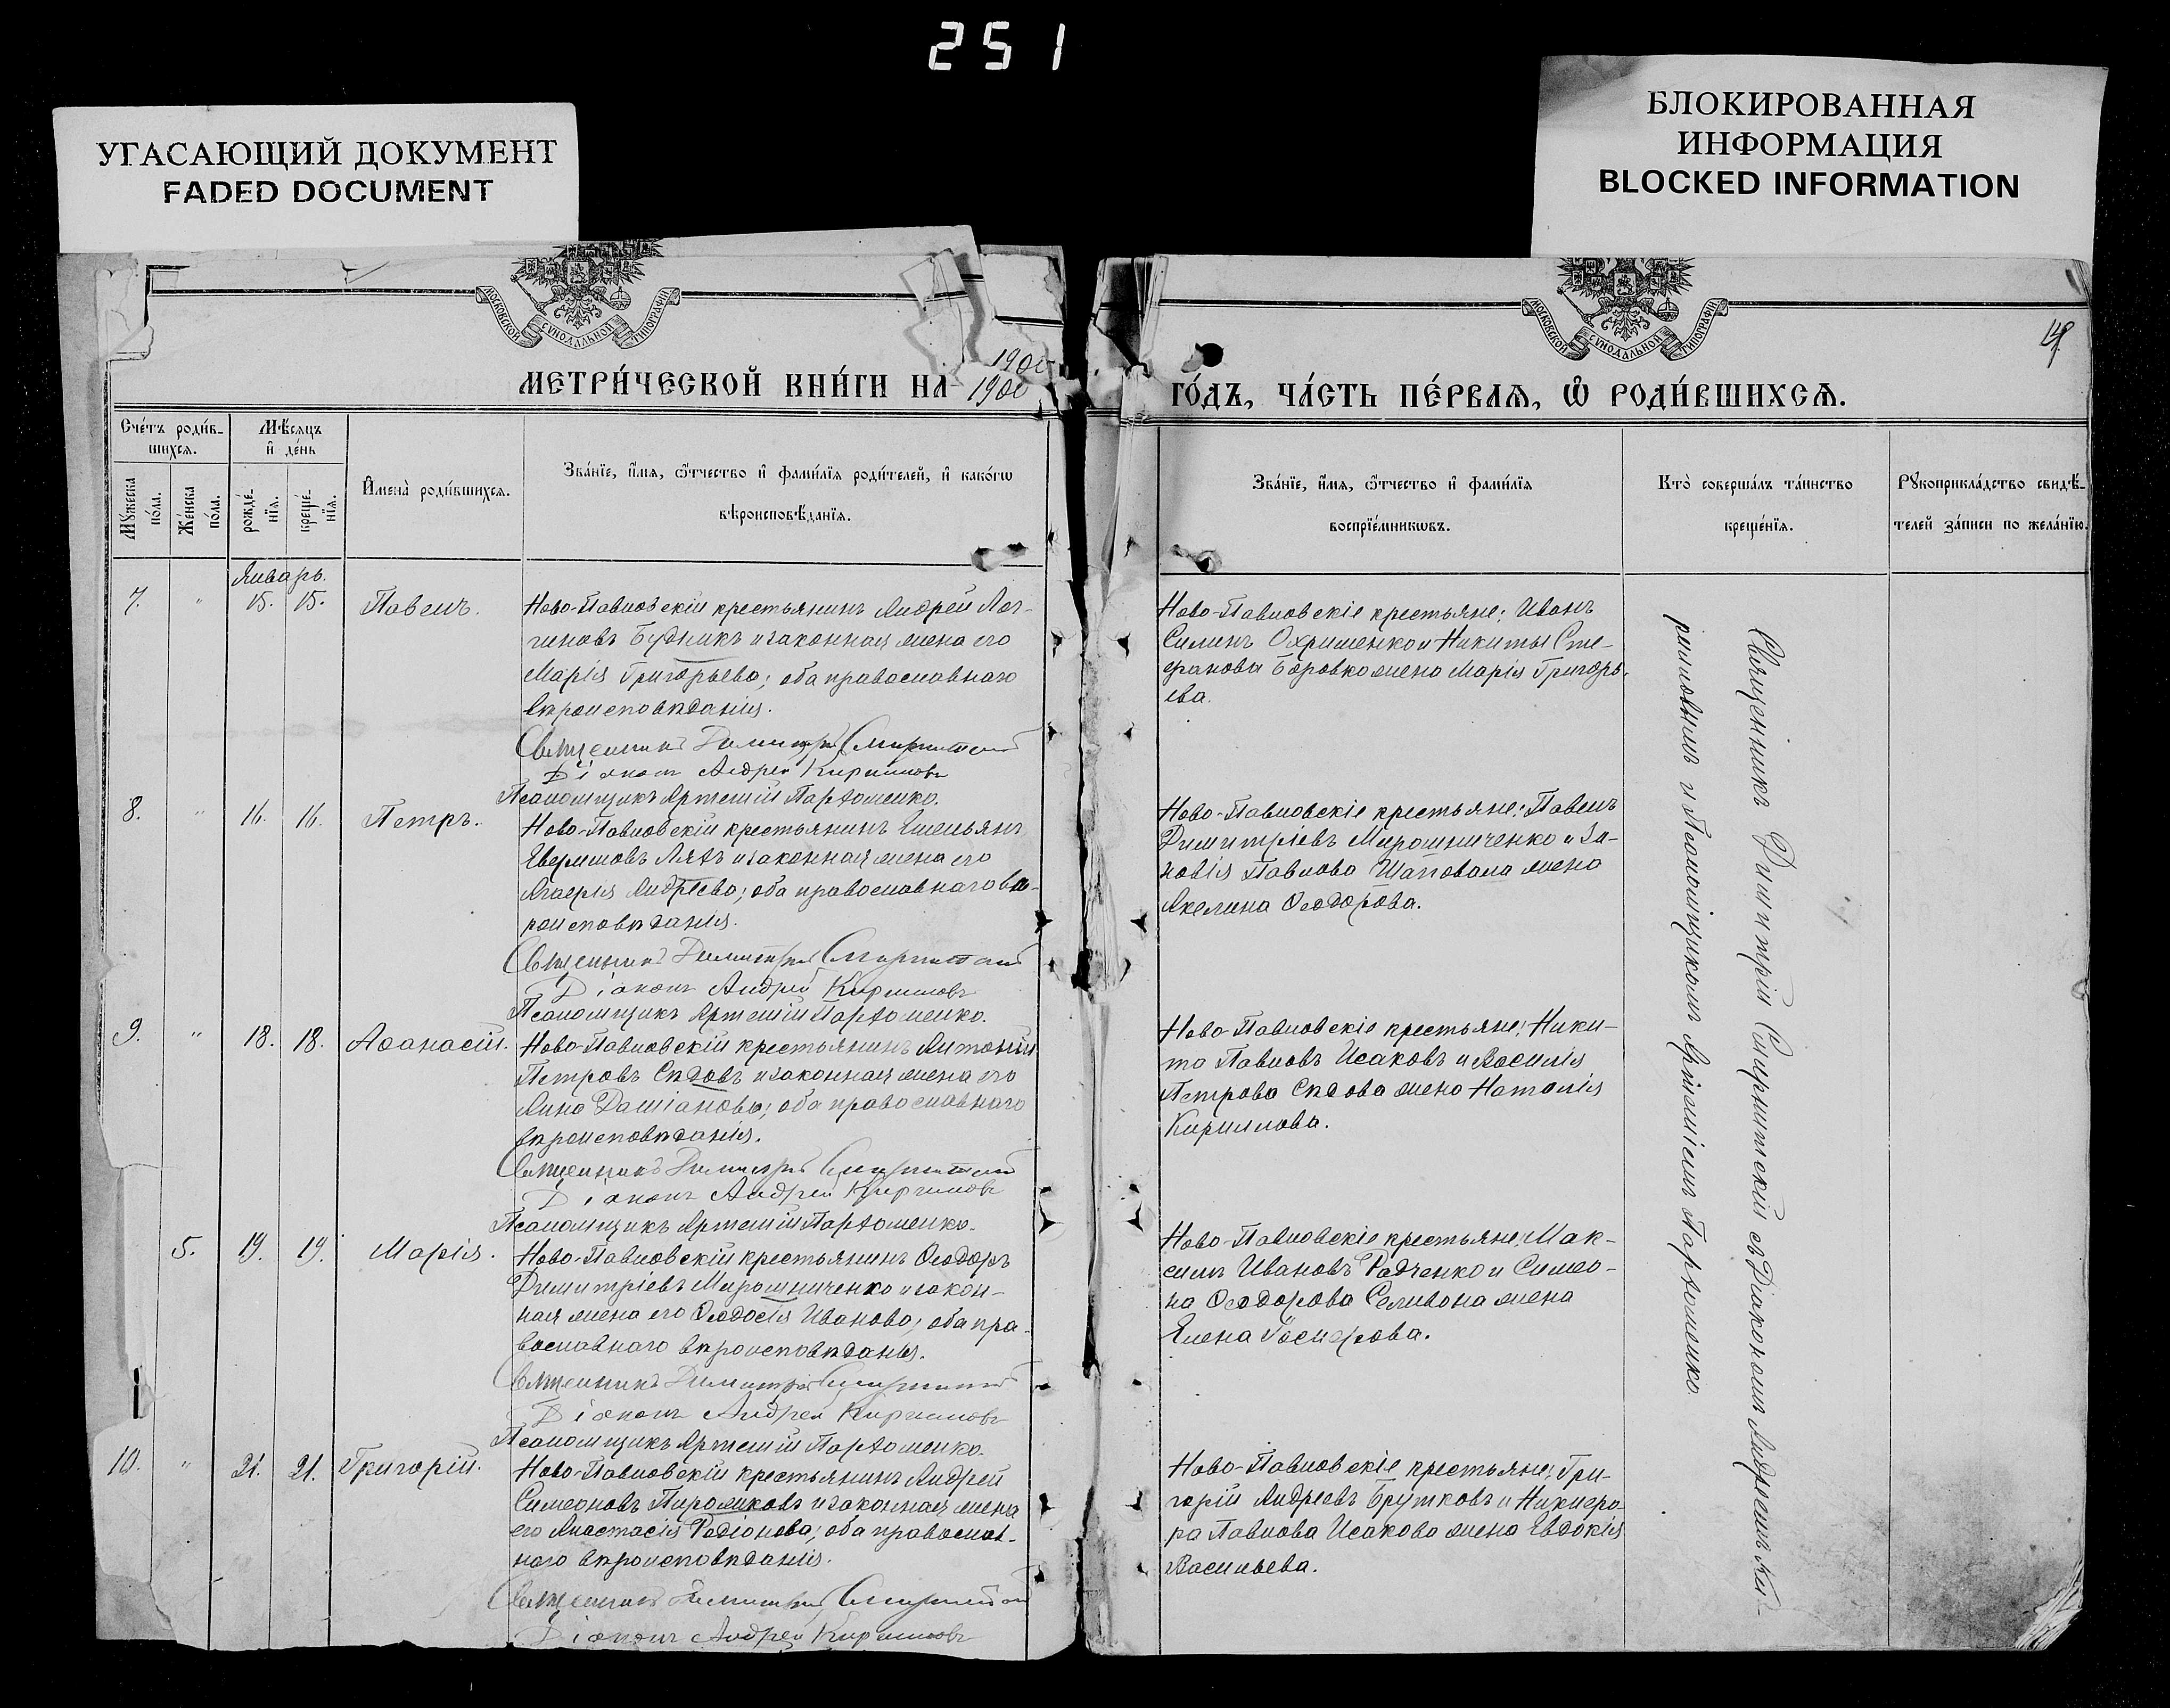 251
УГАСАЮЩИЙ ДОКУМЕНТ
FADED DOCUMENT
БЛОКИРОВАННАЯ
ИНФОРМАЦИЯ
BLOCKED INFORMATION
МОСКОВСКОЙ СѴНОДАЛЬНОЙ ТИПОГРАФІИ
МОСКОВСКОЙ СѴНОДАЛЬНОЙ ТИПОГРАФІИ
1900
МЕТРИ́ЧЕСКОЙ КНИ́ГИ НА 1900
ГО́ДЪ, ЧА́СТЬ ПЕ́РВАЯ, Ѽ РОДИ́ВШИХСЯ.
Сче́тъ роди́в-
шихся.
Мѣ́сяцъ
и҆ де́нь
Мꙋ́жеска по́ла.
Же́нска по́ла.
рожде́-нїя.
креще́-нїя.
И҆мена̀ роди́вшихся.
Зва́нїе, и҆́мя, ѻ҆́тчество и҆ фами́лїя роди́телей, и҆ како́гѡ
вѣроисповѣ́данїя.
Зва́нїе, и҆́мя, ѻ҆́тчество и҆ фами́лїя
воспрїе́мникѡвъ.
Кто̀ соверша́лъ та́инство
креще́нїя.
Рꙋкоприкла́дство свидѣ́-
телей за́писи по жела́нїю.
Январь.
7. " 15. 15. Павелъ.
Ново-Павловскій крестьянинъ Андрей Лог-
гиновъ Будникъ и законная жена его
Марія Григорьева; оба православнаго
вѣроисповѣданія.
Священникъ Димитрій
Діаконъ Андрей Кирилловъ
Псаломщикъ Артемій Парѳоменко.
Ново-Павловскіе крестьяне: Иванъ
Силинъ Охрименко и Никиты Сте-
фанова Боровко жена Марія Григорь-
ева.
8. " 16. 16. Петръ.
Ново-Павловскій крестьянинъ Емельянъ
жена его
Агафія Андреева; оба православнаго вѣ-
роисповѣданія.
Священникъ Димитрій
Діаконъ Андрей Кирилловъ
Псаломщикъ Артемій Парѳоменко.
Ново-Павловскіе крестьяне: Павелъ
Димитріевъ Мирошниченко и За-
новія Павлова Шаповала жена
Акелина Ѳеодорова.
9. " 18. 18. Аѳанасій.
Ново-Павловскій крестьянинъ Антоній
Петровъ Сѣдовъ и законная жена его
Анна Даміанова; оба православнаго
вѣроисповѣданія.
Священникъ Димитрій
Діаконъ Андрей Кирилловъ
Псаломщикъ Артемій Парѳоменко.
Ново-Павловскіе крестьяне: Ники-
та Павловъ Исаковъ и Василія
Петрова Сѣдова жена Наталія
Кириллова.
5. 19. 19. Марія.
Ново-Павловскій крестьянинъ Ѳеодоръ
Димитріевъ Мирошниченко и закон-
ная жена его Ѳеодосія Иванова; оба пра-
вославнаго вѣроисповѣданія.
Священникъ Димитрій
Діаконъ Андрей Кирилловъ
Псаломщикъ Артемій Парѳоменко.
Ново-Павловскіе крестьяне: Мак-
симъ Ивановъ Радченко и Симео-
на Ѳеодорова Селивона жена
Елена
10. " 21. 21. Григорій.
Ново-Павловскій крестьянинъ Андрей
Симеоновъ Пирожковъ и законная жена
его Анастасія Родіонова; оба православ-
наго вѣроисповѣданія.
Священникъ Димитрій
Діаконъ Андрей Кирилловъ
Ново-Павловскіе крестьяне: Гри-
горій Андреевъ Брутковъ и Никифо-
ра Павлова Исакова жена Евдокія
Васильева.
Священникъ Димитрій съ Діакономъ Андреемъ Ки-
рилловымъ и Псаломщикомъ Артеміемъ Парѳоменко.